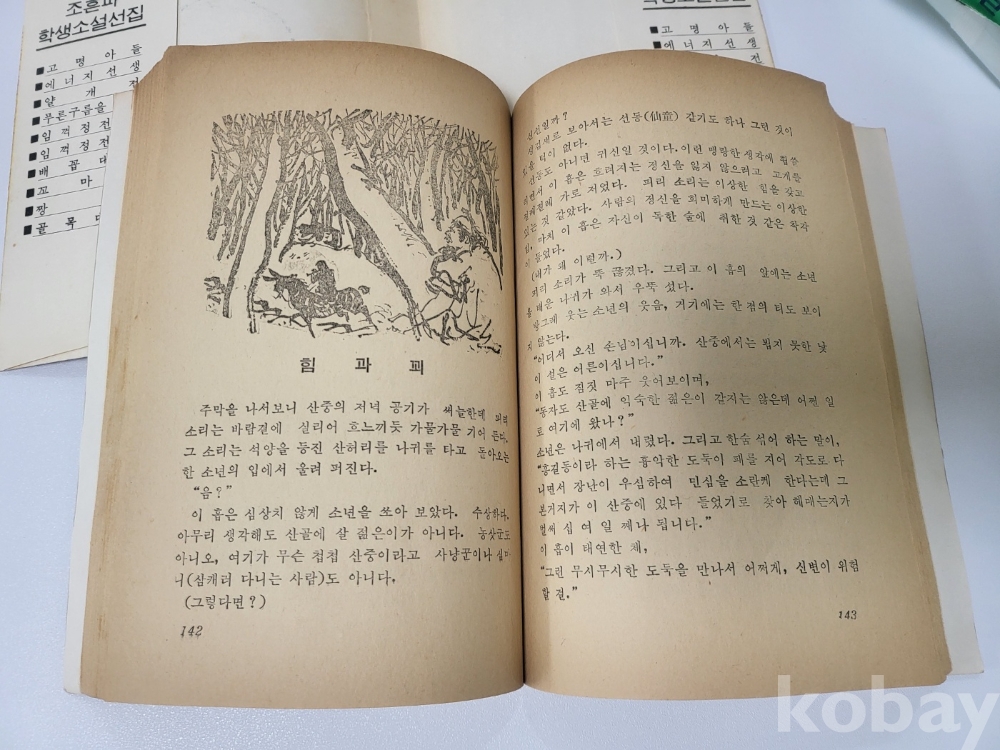 조흔파
학생소설선집
■고명아들
■에너지선생
■얄개전
■푸른구름을
■임꺽정전
■임꺽정전
■배꼽대
■꼬마
■짱
■골목대
■고명아들
■에너지선생
힘 과 꾀
주막을 나서보니 산중의 저녁 공기가 써늘한데 피리
소리는 바람결에 실리어 흐느끼듯 가물가물 기어 든다.
그 소리는 석양을 등진 산허리를 나귀를 타고 돌아오는
한 소년의 입에서 울려 퍼진다.
“음?”
이 흡은 심상치 않게 소년을 쏘아 보았다. 수상하다.
아무리 생각해도 산골에 살 젊은이가 아니다. 농삿군도
아니오, 여기가 무슨 첩첩 산중이라고 사냥꾼이나 심마
니(삼캐러 다니는 사람)도 아니다.
(그렇다면?)
142
신선일까?
보아서는 선동(仙童) 같기도 하나 그런 것이
턱이 없다.
선동도 아니면 귀신일 것이다. 이런 맹랑한 생각에 휩쓸
리면서 이 흡은 흐려지는 정신을 잃지 않으려고 고개를
가로 저었다. 피리 소리는 이상한 힘을 갖고
있는 것 같았다. 사람의 정신을 희미하게 만드는 이상한
힘, 마치 이 흡은 자신이 독한 술에 취한 것 같은 착각
이 들었다.
(내가 왜 이럴까.)
피리 소리가 뚝 끊겼다. 그리고 이 흡의 앞에는 소년
을 태운 나귀가 와서 우뚝 섰다.
방그레 웃는 소년의 웃음, 거기에는 한 점의 티도 보이
지 않는다.
“어디서 오신 손님이십니까. 산중에서는 뵙지 못한 낯
이 설은 어른이십니다.”
이 흡도 짐짓 마주 웃어보이며,
“동자도 산골에 익숙한 젊은이 같지는 않은데 어쩐 일
로 여기에 왔나?”
소년은 나귀에서 내렸다. 그리고 한숨 섞어 하는 말이,
“홍길동이라 하는 흉악한 도둑이 패를 지어 각도로 다
니면서 장난이 우심하여 민심을 소란케 한다는데 그
본거지가 이 산중에 있다 들었기로 찾아 헤매는지가
벌써 십 여 일 째나 됩니다.”
이 흡이 태연한 채,
“그런 무시무시한 도둑을 만나서 어쩌게, 신변이 위험
할 걸.”
143
kobay